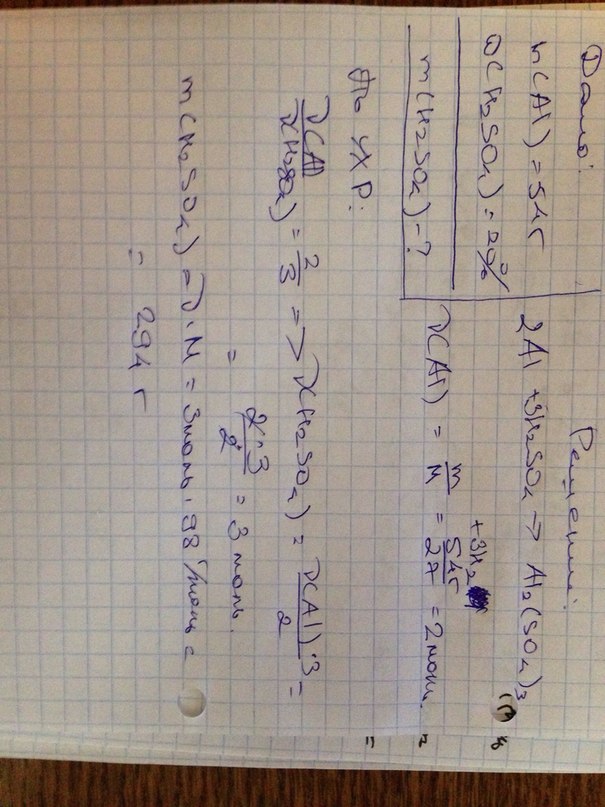 Дано:
m(Al) = 54г
ω(H₂SO₄) = 20%
m(H₂SO₄) - ?
Решение:
2Al + 3H₂SO₄ → Al₂(SO₄)₃
+ 3H₂
ν(Al) = m/M = 54г/27 = 2 моль.
По УХР:
ν(Al)/ν(H₂SO₄) = 2/3 => ν(H₂SO₄) = ν(Al)·3/2 =
= 2·3/2 = 3 моль.
m(H₂SO₄) = ν·M = 3моль·98 г/моль =
= 294 г